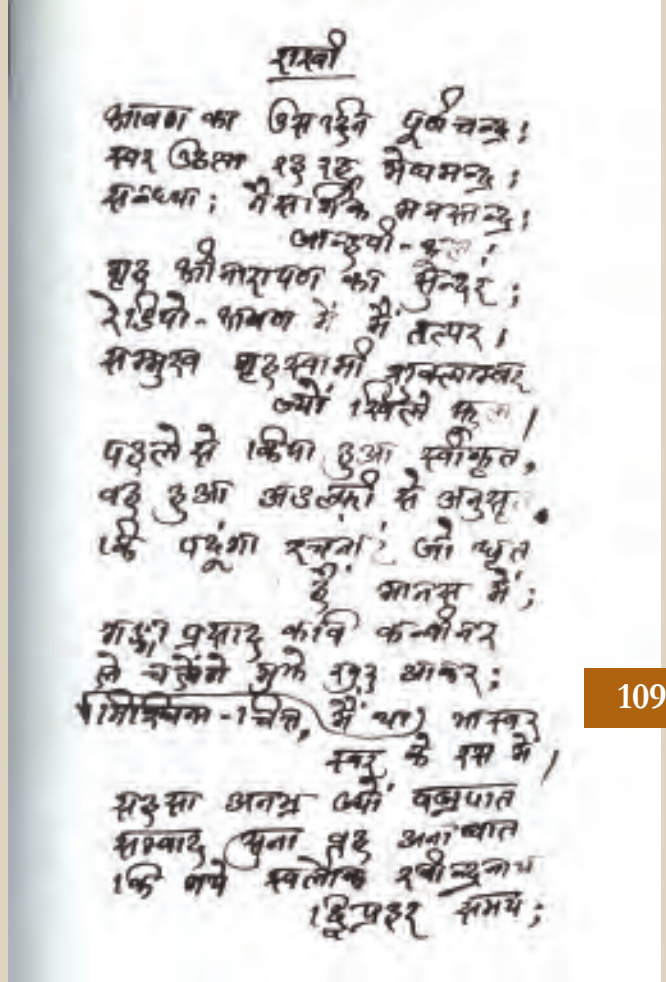 राखी
श्रावण का उस दिन पूर्ण चन्द्र;
स्वर उठता रह रह मेघमन्द्र;
सन्ध्या; नैसर्गिक
जान्हवी-कूल;
गृह श्रीनारायण का सुन्दर;
रेडियो-श्रावण में मैं तत्पर।
सम्मुख गृहस्वामी
ज्यों खिले फूल।
पहले से किया हुआ स्वीकृत,
वह हुआ से
कि पढूंगा रचनाएं जो धृत
हैं मानस में;
गङ्गाप्रसाद कवि कन्वीनर
ले चलेंगे मुझे खुद आकर;
निश्चिन्त-चित्त, मैं था भास्वर
स्वर के रस में।
सहसा अनभ्र ज्यों वज्रपात
सम्वाद सुना यह
कि गये स्वर्लोक रवीन्द्रनाथ
द्विप्रहर समय;
109